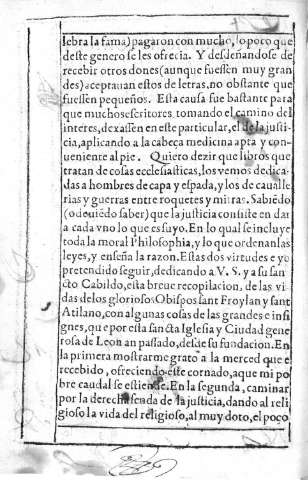 lebra la fama) pagaron con mucho, lo poco que
deste genero se les ofrecia. Y desdeñandose de
recebir otros dones (aunque fuessen muy gran
des) aceptauan estos de letras, no obstante que
fuessen pequeños. Esta causa fue bastante para
que muchos escritores, tomando el camino del
interes, dexassen en este particular, el de la justi-
cia, aplicando a la cabeça medicina apta y con-
ueniente al pie. Quiero dezir que libros que
tratan de cosas ecclesiasticas, los vemos dedica-
das a hombres de capa y espada, y los de caualle
rias y guerras entre roquetes y mitras. Sabiẽdo
(o deuiẽdo saber) que la justicia consiste en dar
a cada vno lo que es suyo. En lo qual se incluye
toda la moral Philosophia, y lo que ordenan las
leyes, y enseña la razon. Estas dos virtudes e yo
pretendido seguir, dedicando a V. S. y a su san
cto Cabildo, esta breue recopilacion, de las vi
das de los gloriosos Obispos sant Froylan y sant
Atilano, con algunas cosas de las grandes e insi
gnes, que por esta sancta Iglesia y Ciudad gene
rosa de Leon an passado, desde su fundacion. En
la primera mostrarme grato a la merced que e
recebido, ofreciendo este cornado, a que mi po
bre caudal se estiende. En la segunda, caminar
por la derecha senda de la justicia, dando al reli
gioso la vida del religioso, al muy doto, el poco